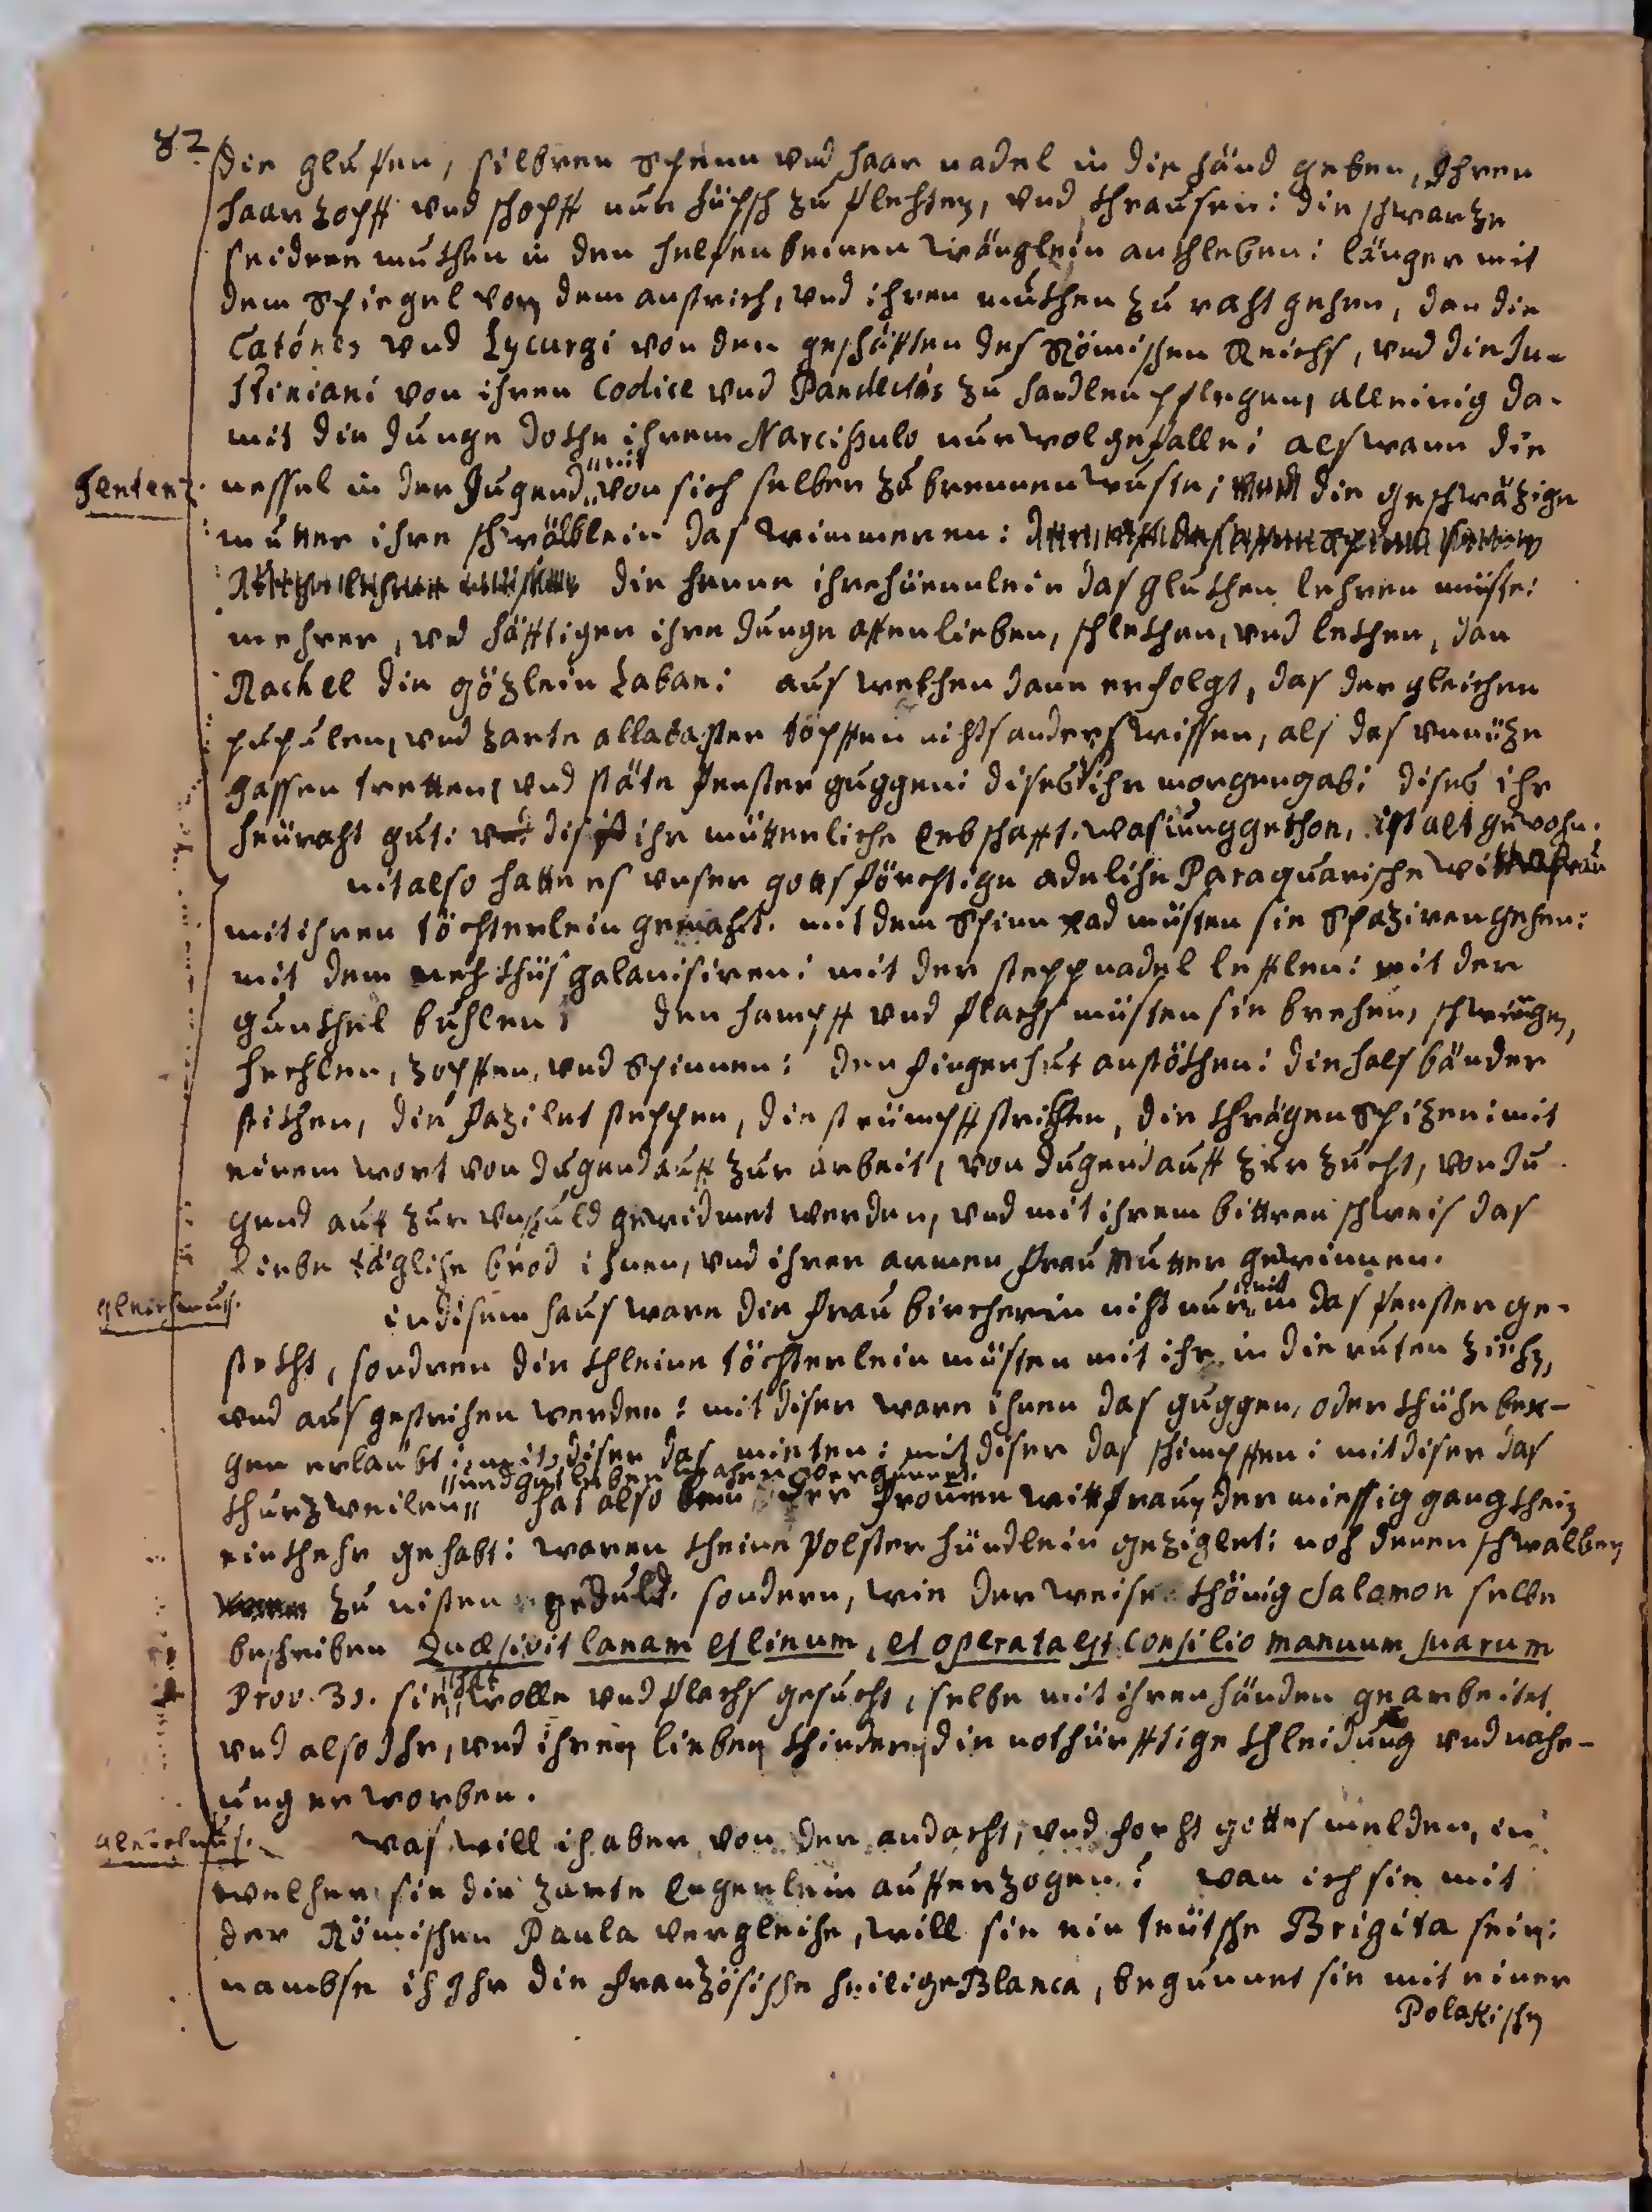 82
die glufen, silbren Spänn vnd haar nadel in die händ geben, Ihren
haar zopff vnd schopff nur hüpsch zu flechten, vnd khrausen: die schwarze
seidene mukhen in den helfenbeinen wänglein ankhleben: länger mit
dem Spiegel von dem anstrich, vnd ihren mukhen zu raht gehen, dan die
Catónes vnd Lycurgi von den geschäfften des Römischen Reichs, vnd die Ju-
stiniani von ihren Codice vnd Pandectis zu handlen pflegen, alleinig da-
mit die Junge dokhe ihrem Narcissulo nur wol gefalle: als wann die
Sentenz. nessel in der Jugend „nit„ von sich selber zu brennen wuste; die geschwäzige
mutter ihre schwälblein das wimmeren:
die henne ihre hüennlein das glukhen lehren müste:
mehrer, vnd häfftiger ihre Junge affen lieben, schlekhen, vnd lekhen, dan
Rachel die gözlein Laban: aus welchen dann erfolgt, das der gleichen
pupulen, vnd zarte allabaster töpffen nichts anders wissen, als das vnnüze
gassen tretten, vnd stäte fenster guggen: dises ist ihr morgengab: dises ihr
heüraht gut: dis ihr mütterliche erbschafft. was iung gethon, ist alt gewohn.
nit also hatte es vnser gottsförchtige adeliche Paraquarische wittfrau
mit ihren töchterlein gemacht. mit dem Spinn rad müsten sie Spaziren gehen:
mit dem neh khüs galanisiren: mit der steppnadel lefflen: mit der
gunkhel buhlen: den hampff vnd flachs müsten sie brechen, schwingen,
hechlen, zopffen, vnd Spinnen: den fingerhut anstökhen: die hals bänder
stikhen, die fazilet steppen, die strümpff strikhen, die khrägen Spizen: mit
einem wort von Jugend auff zur arbeit, von Jugend auff zur zucht, von Ju-
gend auff zur vnschuld gewidmet werden, vnd mit ihrem bittren schweis das
liebe tägliche brod ihnen, vnd ihrer armen frau Mutter gewinnen.
gleichnus. in disem haus ware die frau bircherin nicht nur „nit„ in das fenster ge-
stekht, sondren die khleine töchterlein müsten mit ihr in die ruten ziehen,
vnd aus gestrichen werden: mit diser ware ihnen das guggen, oder khüche ber-
gen erlaubt: mit diser das mieten: mit diser das schimpffen: mit diser das
khurzweilen „und gut leben
hat also der frommen wittfrauen der miessig gang khein
einkhehr gehabt: waren kheine Polster hündlein gezigelet: noch denen schwalben
zu nisten geduld. sondern, wie der weise khönig Salomon selbe
beschriben Quæsivit lanam et linum, et operata est consilio manuum suarum
Prov. 31. sie „hat„ wolle vnd flachs gesucht, selbe mit ihren händen gearbeitet,
vnd also Ihr, vnd ihren lieben khinderen die nothürfftige khleidung vnd nahr-
ung erworben.
gleichnus. was will ich aber von der andacht, vnd forcht gottes melden, in
welcher sie die zarte Engerlein aufferzogen? wan ich sie mit
der Römischen Paula vergleiche, will sie ein teütsche Brigita sein:
nambse ich Ihr die französische heilige Blanca, begunnet sie mit einer
Polakischen